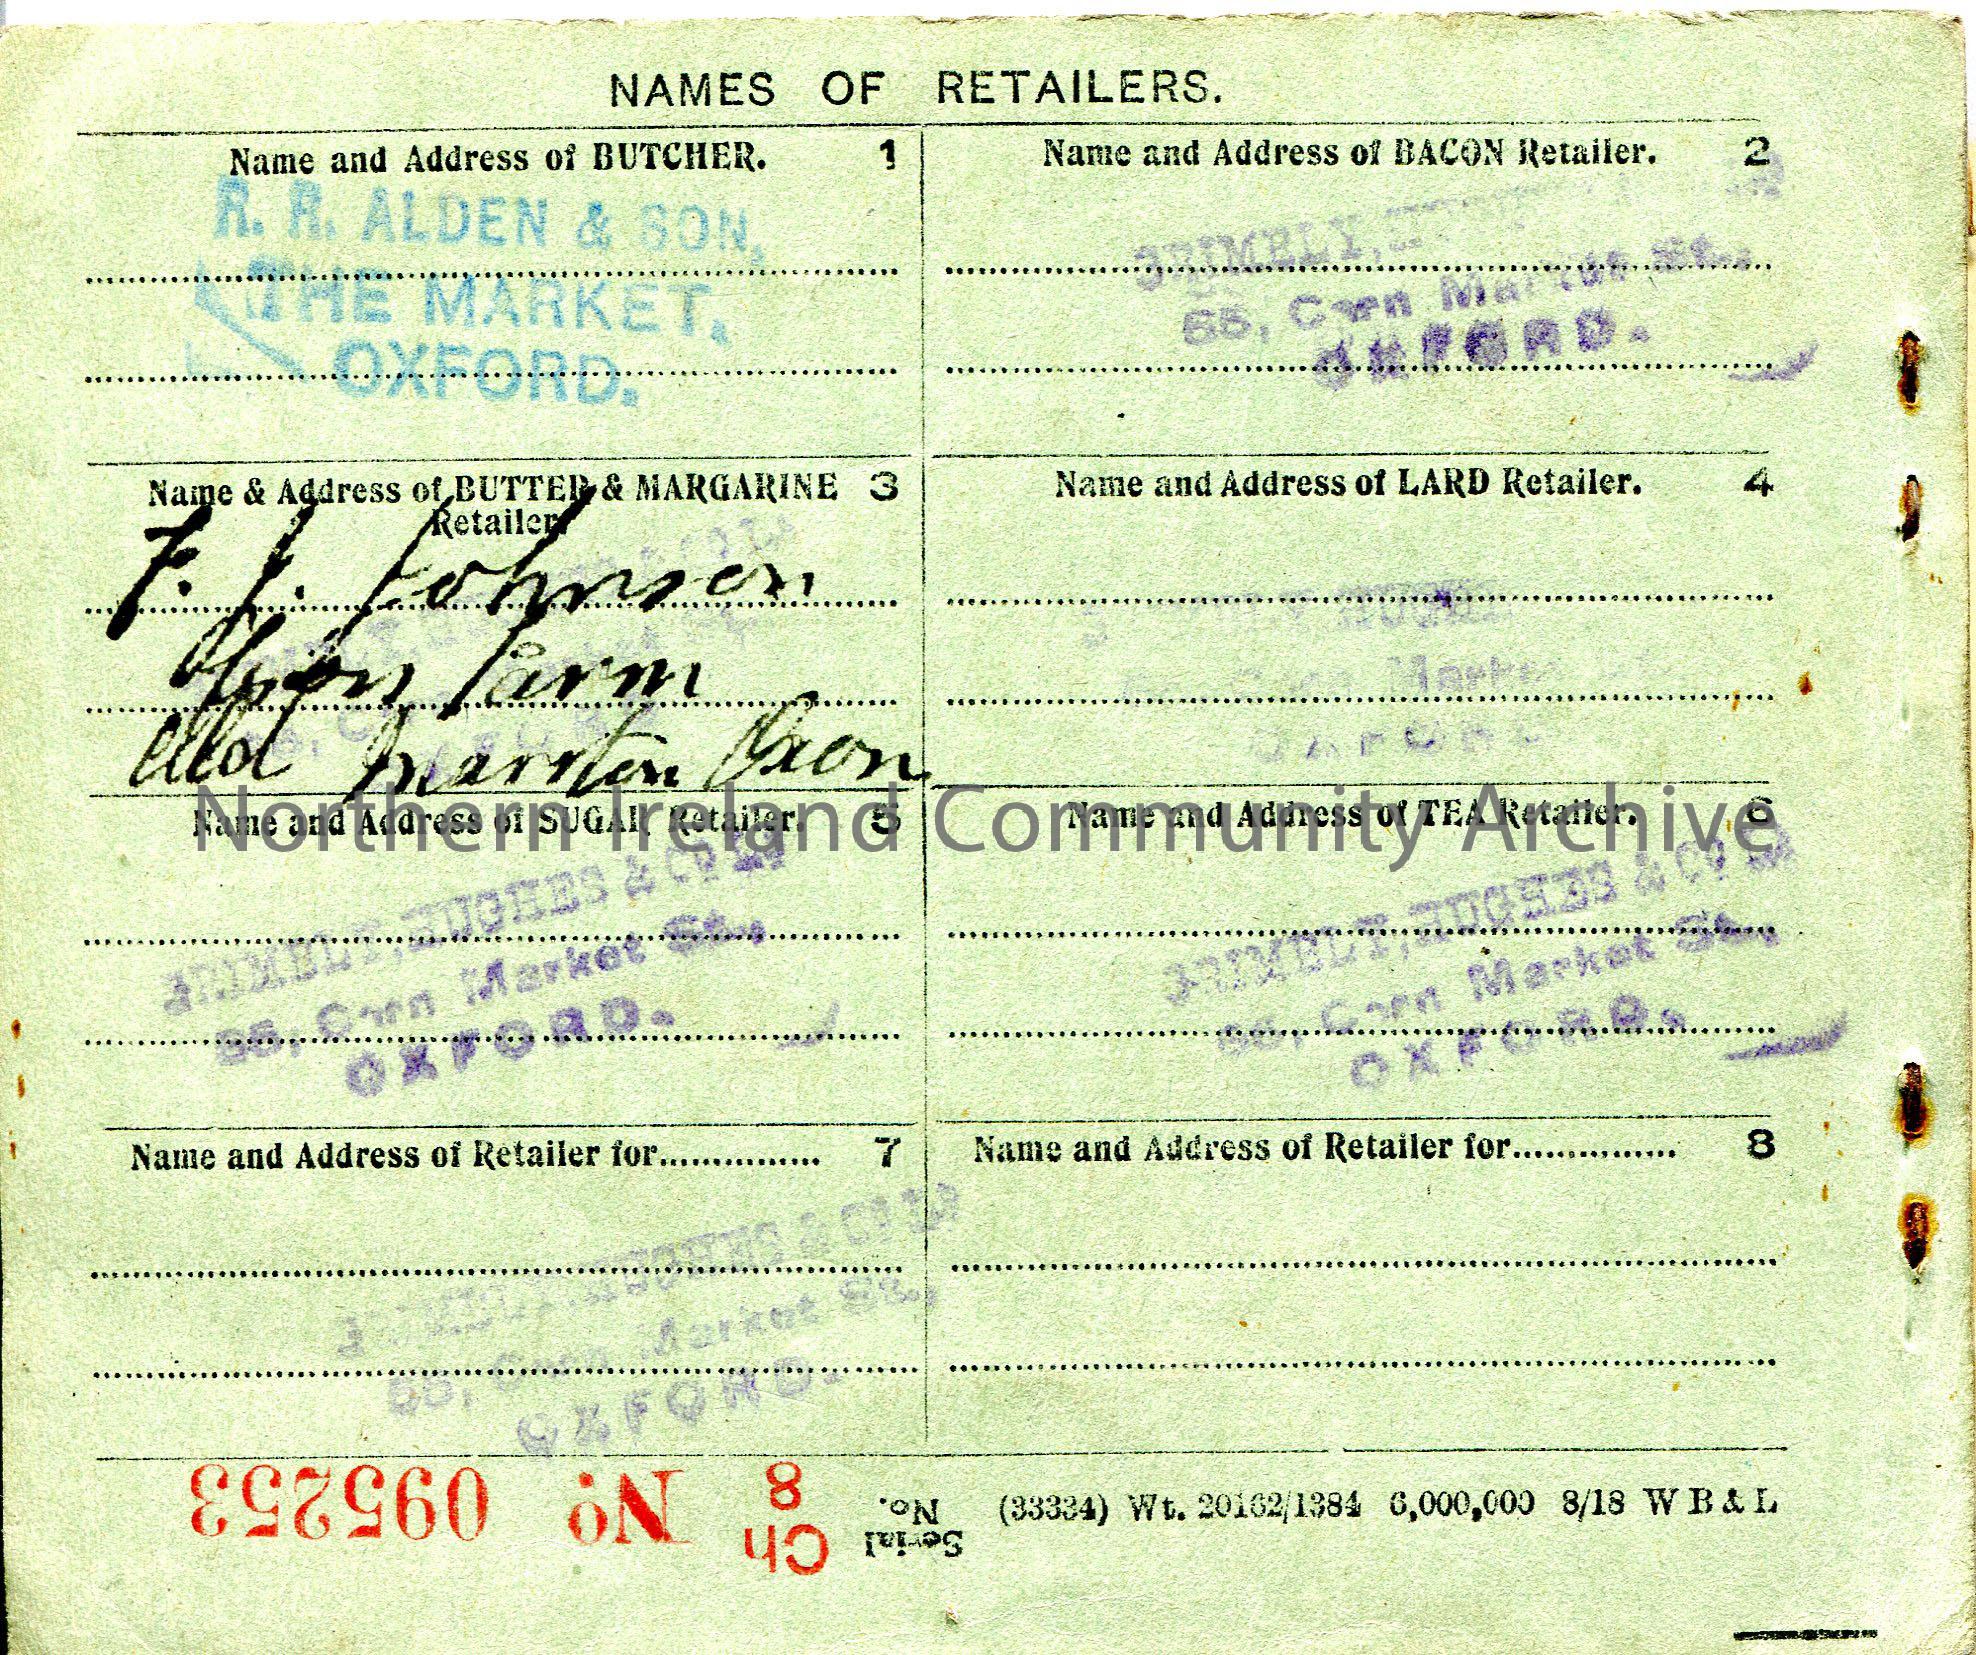 NAMES OF RETAILERS.
Name and Address of BUTCHER. 1
R. R. ALDEN & SON,
THE MARKET,
OXFORD.
Name and Address of BACON Retailer. 2
55, Corn Market St.,
OXFORD.
Name & Address of BUTTER & MARGARINE 3
Retailer.
F. J. Johnson
Farm
Old Marston Oxon
Name and Address of LARD Retailer. 4
Corn Market
OXFORD
Northern Ireland Community Archive
Name and Address of SUGAR Retailer. 5
GRIMBLY, HUGHES & Co Ld
55, Corn Market St.,
OXFORD.
Name and Address of TEA Retailer. 6
GRIMBLY, HUGHES & Co Ld
55, Corn Market St.,
OXFORD.
Name and Address of Retailer for............... 7
HUGHES & Co Ld
55, Corn Market St.,
OXFORD.
Name and Address of Retailer for............... 8
Serial
No.
Ch
8
No 095253
(33334) Wt. 20162/1384 6,000,000 8/18 W B & L